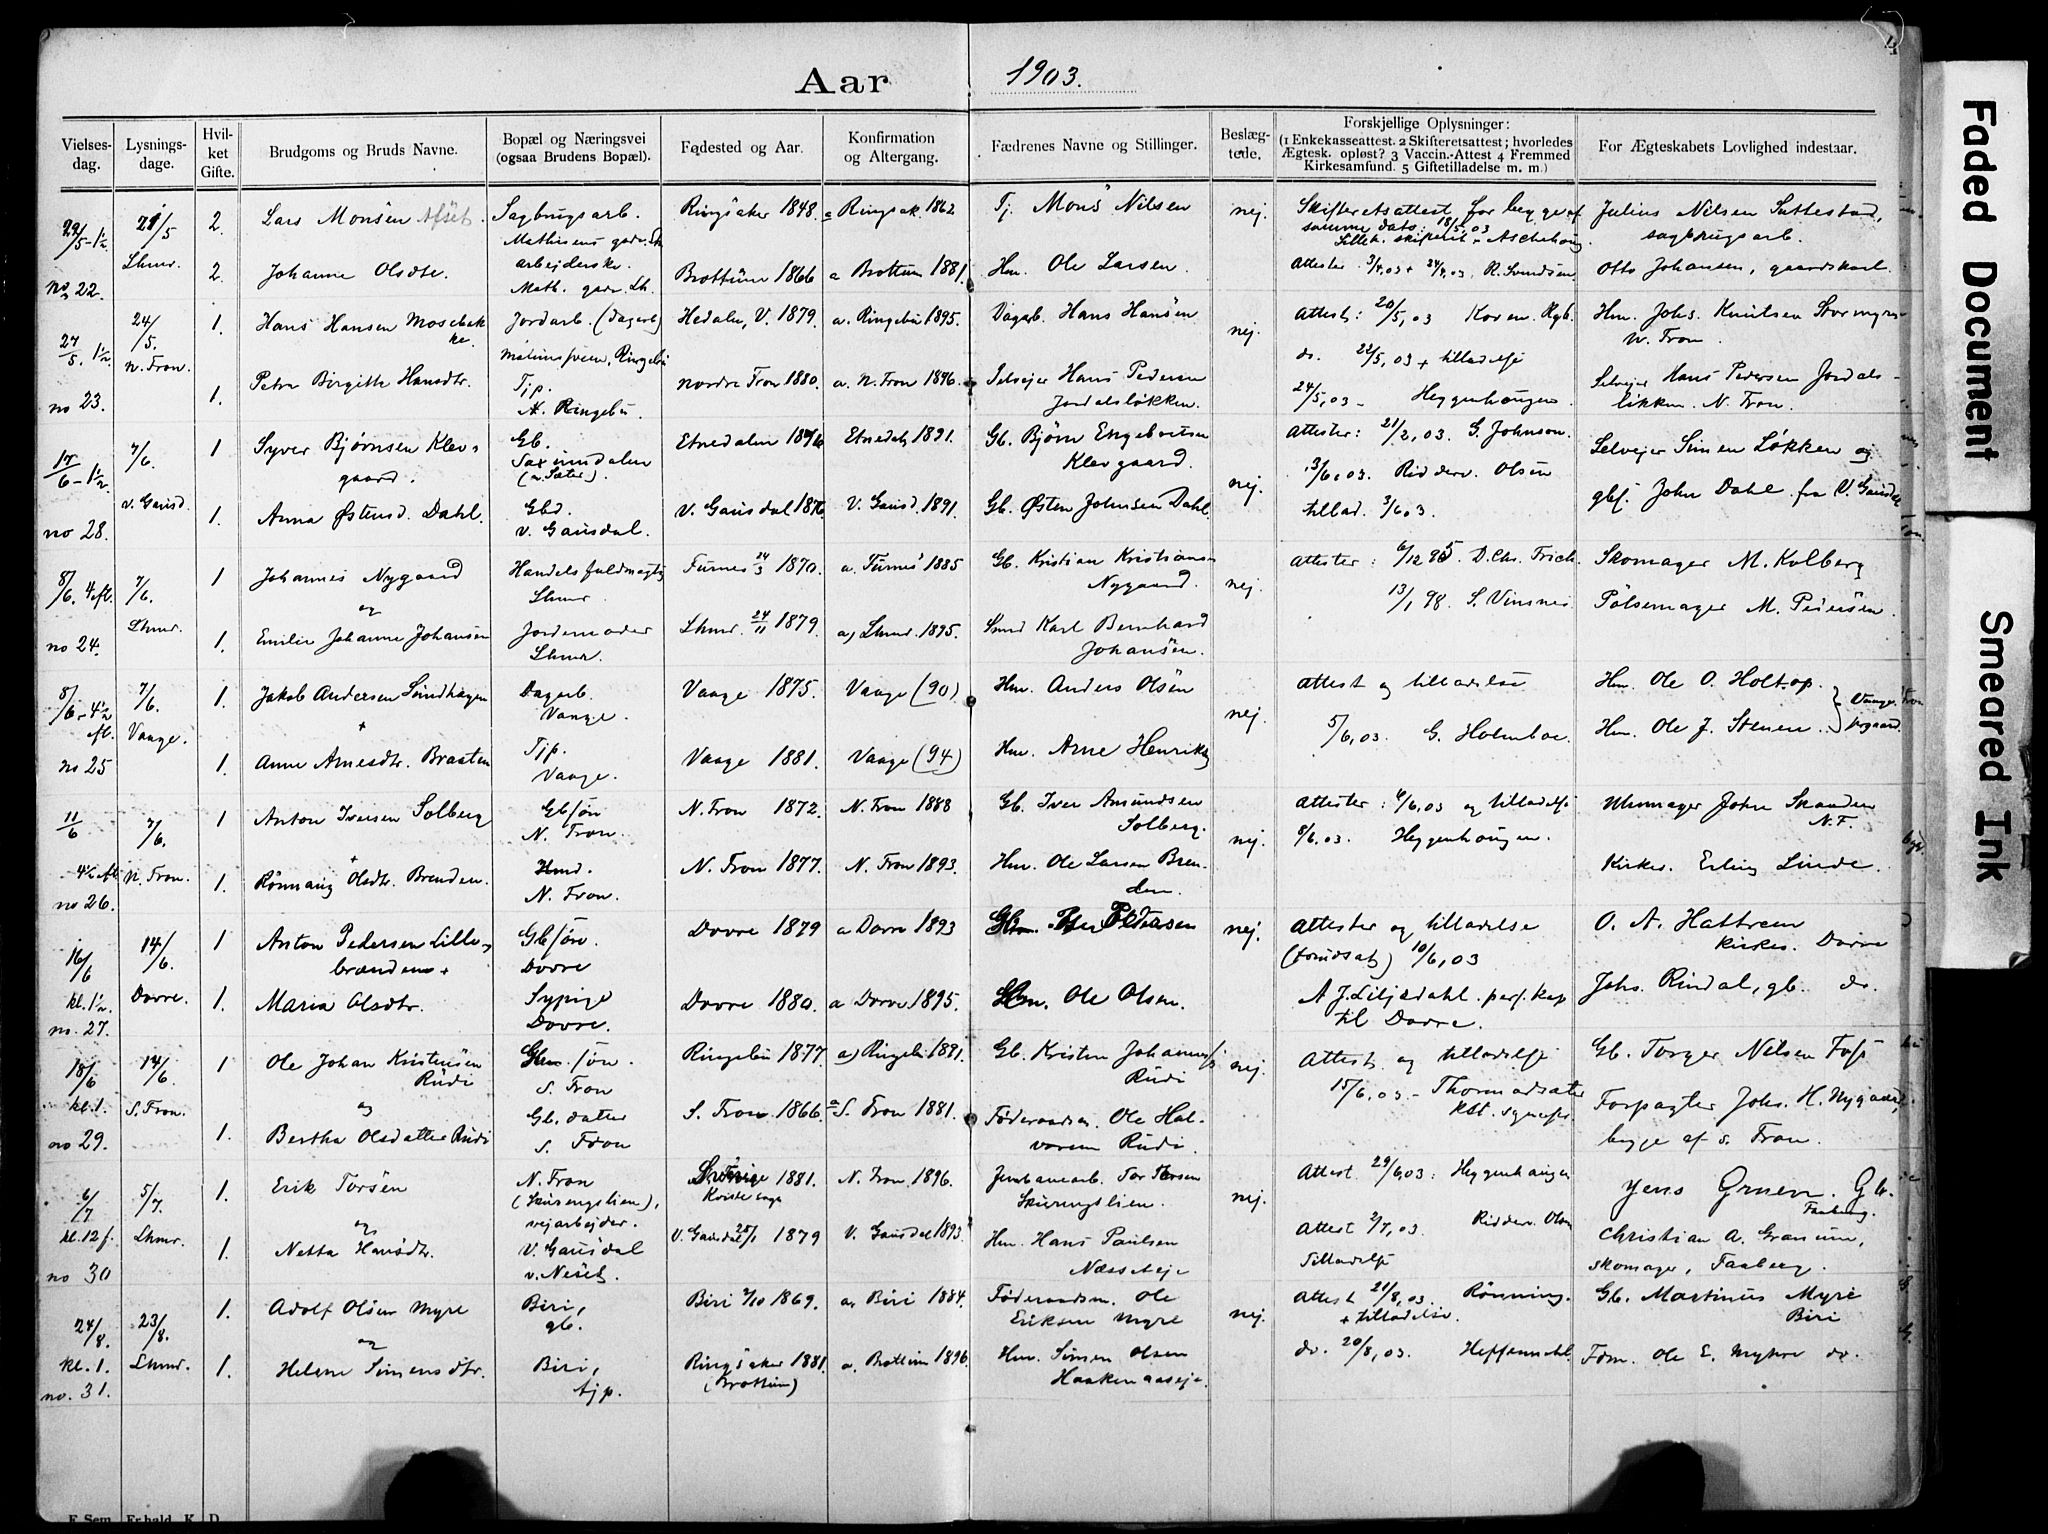 Aar 1903.
4
Vielses-dag.
Lysnings-dage.
Hvil-ket Gifte.
Brudgoms og Bruds Navne.
Bopæl og Næringsvei (ogsaa Brudens Bopæl).
Fødested og Aar.
Konfirmation og Altergang.
Fædrenes Navne og Stillinger.
Beslæg-tede.
Forskjellige Oplysninger: (1 Enkekasseattest. 2 Skifteretsattest; hvorledes Ægtesk. opløst? 3 Vaccin.-Attest 4 Fremmed Kirkesamfund. 5 Giftetilladelse m. m.)
For Ægteskabets Lovlighed indestaar.
22/5 - 1½ 21/5 2. Lars Monsen Sagbrugsarb. Ringsaker 1848. a Ringsak. 1862 Tj. Mons Nilsen nej. Skifteretsattest for begge af Julius Nilsen Sættestad,
Mathisens gade. samme dato: 18/5 03 sagbrugsarb.
Lhmr. arbejderske. Lilleh. skifteret Aschehoug
no 22. 2. Johanne Olsdtr. Math. gade. Lh. Brøttum 1866 a Brøttum 1881. Hm. Ole Larsen. Attester 3/4,03 + 24/4,03, R. Svendsen Otto Johansen, gaardskarl.
27/5. 1½ 24/5. 1. Hans Hansen Moschak- Jordarb. (dagarb) Hedalen, V. 1879. a. Ringebu 1895. Vagarb. Hans Hansen nej. Attest: 20/5,03 Koren. Rgb. Hm. Johs. Knutsen Stormyr-
ke. Ringebu N. Fron.
N. Fron. do. 22/5,03 + tilladelse
no 23. 1. Petra Birgitte Hansdtr. Tjp. Nordre Fron 1880. a. N. Fron 1896. Selvejer Hans Pedersen 24/5,03 - Heggenhougen Selvejer Hans Pedersen Jordals-
N. Ringebu. Jordalsløkken. løkken. N. Fron.
17/6 - 1½. 7/6. 1 Syver Bjørnsen Klev- Gb. Etnedalen 1876 Etnedal 1891. Gb. Bjørn Engebretsen Attester: 21/2,03. G. Johnson. Selvejer Simen Løkken og
gaard. (v. Sæter). Klevgaard. 13/6,03. Ridderv. Olsen
v. Gausd. nej.
no 28. 1. Anna Østensd. Dahl. Gbd. V. Gausdal 1876 V. Gausd. 1891. Gb. Østen Johnsen Dahl. tillad. 3/6,03. gbs. John Dahl fra V. Gausdal
V. Gausdal.
8/6. 4 eft. 7/6. 1 Johannes Nygaard Handelsfuldmægtig Furnes 24/3 1870. a. Furnes 1885 Gb. Kristian Kristians- nej. Attester: 6/12 95 D. Chr. Frich. Skomager M. Kolberg
og Lhmr. Nygaard. 13/1 98. S. Vinsnes. Pølsemager M. Pedersen.
Lhmr.
no 24. 1. Emilie Johanne Johansen Jordemoder Lhmr. 24/11 1879. a) Lhmr. 1895. Smed Karl Bernhard
Lhmr. Johansen.
8/6. 4½ eft. 7/6. 1. Jakob Andersen Sundhagen Dagarb. Vaage 1875. Vaage (90) Hm. Anders Olsen nej. Attest og tilladelse Hm. Ole O. Holt.
Vaage. + Vaage.
no 25 1. Anne Arnesdtr. Braaten Tjp. Vaage 1881. Vaage (94) Hm. Arne Henriks. 5/6,03. G. Holmboe. Hm. Ole J. Steneen.
Vaage.
11/6 7/6. 1 Anton Iversen Solberg Gbsøn N. Fron 1872. N. Fron 1888 Gb. Iver Amundsen Attester: 4/6,03 og tilladelse Uhrmager John Skaaden
+ N. Fron. Solberg. nej. 8/6,03. Heggenhougen. N.F.
4½ eft. N. Fron. 1. Rønnaug Olsdtr. Brenden. Hmd. N. Fron 1877. N. Fron 1893. Hm. Ole Larsen Bren- Kirkes. Erling Linde.
no 26. N. Fron. den.
16/6 14/6. 1 Anton Pedersen Lille- Gbsøn. Dovre 1879 a Dovre 1893 Pedersen nej. Attester og tilladelse O. A. Hattrem
brænden + Dovre 10/6,03 kirkes. Dovre
kl. 1½. Dovre. 1. Maria Olsdtr. Sypige Dovre 1880. a Dovre 1895. Hm. Ole Olsen. A J. Liljedahl. pers. kap Johs. Rindal, gb. do.
no. 27. Dovre. til Dovre.
18/6 14/6. 1 Ole Johan Kristensen Gbm. søn. Ringebu 1877. a) Ringebu 1891. Gb. Kristen Johannes nej. Attest og tilladelse Gb. Torger Nilsen Fos
Rudi S. Fron Rudi 15/6,03 - Thormodsæter
kl. 1. S. Fron. og Gb. datter S. Fron 1866. a S. Fron 1881. Føderaadsm. Ole Hal- Forpagter Johs. H. Nygaard,
no 29. 1. Bertha Olsdatter Rudi S. Fron vorsen Rudi. begge af S. Fron.
6/7 5/7. 1. Erik Torsen N. Fron Sverige 1881. N. Fron 1896. Jernbanearb. Tor Torsen nej. Attest 29/6,03: Heggenhougen Jens Gruen. Gb.
og (Skurengslien), Skurengslien. Faaberg.
vejarbejder.
kl. 12 f. Lhmr. 1. Netta Hansdtr. V. Gausdal V. Gausdal 25/1 1879 V. Gausdal 1893. Hm. Hans Paulsen Attest 2/7,03. Ridderv. Olsen Christian A. Granum,
no 30 v. Neset. Næsseteje Tilladelse skomager, Faaberg.
24/8. 23/8. 1. Adolf Olsen Myre Biri, Biri 2/10 1869. a. Biri 1884. Føderaadsm. Ole nej. Attest 21/8,03. Rønning. Gb. Martinus Myre
og gb. Eriksen Myre + tilladelse. Biri
kl. 1. Lhmr. 1. Helene Simensdtr. Biri, Ringsaker 1881. a. Brøttum 1896. Hm. Simen Olsen do. 20/8,03. Fdm. Ole E. Myhre do.
no. 31. tjp. (Brøttum) Haakenaaseje.
F. Sem
Faded Document
Smeared Ink